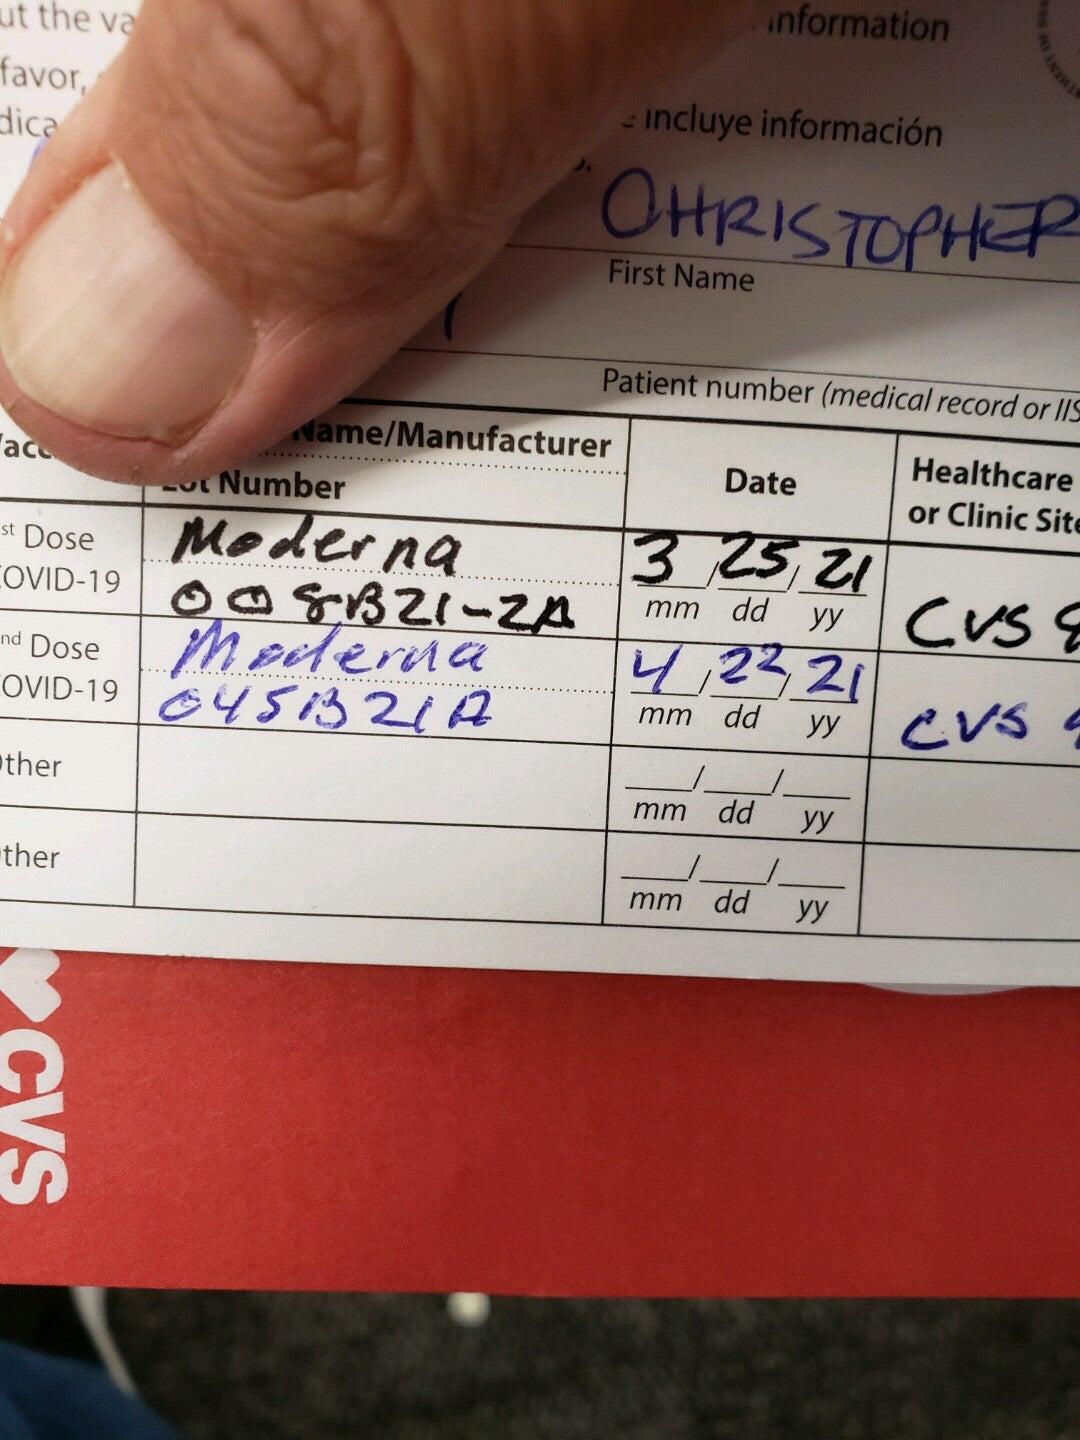 ut the va
information
favor,
dica
incluye información
CHRISTOPHER
First Name
Patient number (medical record or IIS
Name/Manufacturer
Lot Number
Date
Healthcare
or Clinic Site
st Dose
COVID-19
Moderna
008B21-2A
3/25/21
mm dd yy
CVS
nd Dose
COVID-19
Moderna
045B21A
4/22/21
mm dd yy
CVS
Other
__/__/__
mm dd yy
Other
__/__/__
mm dd yy
CVS